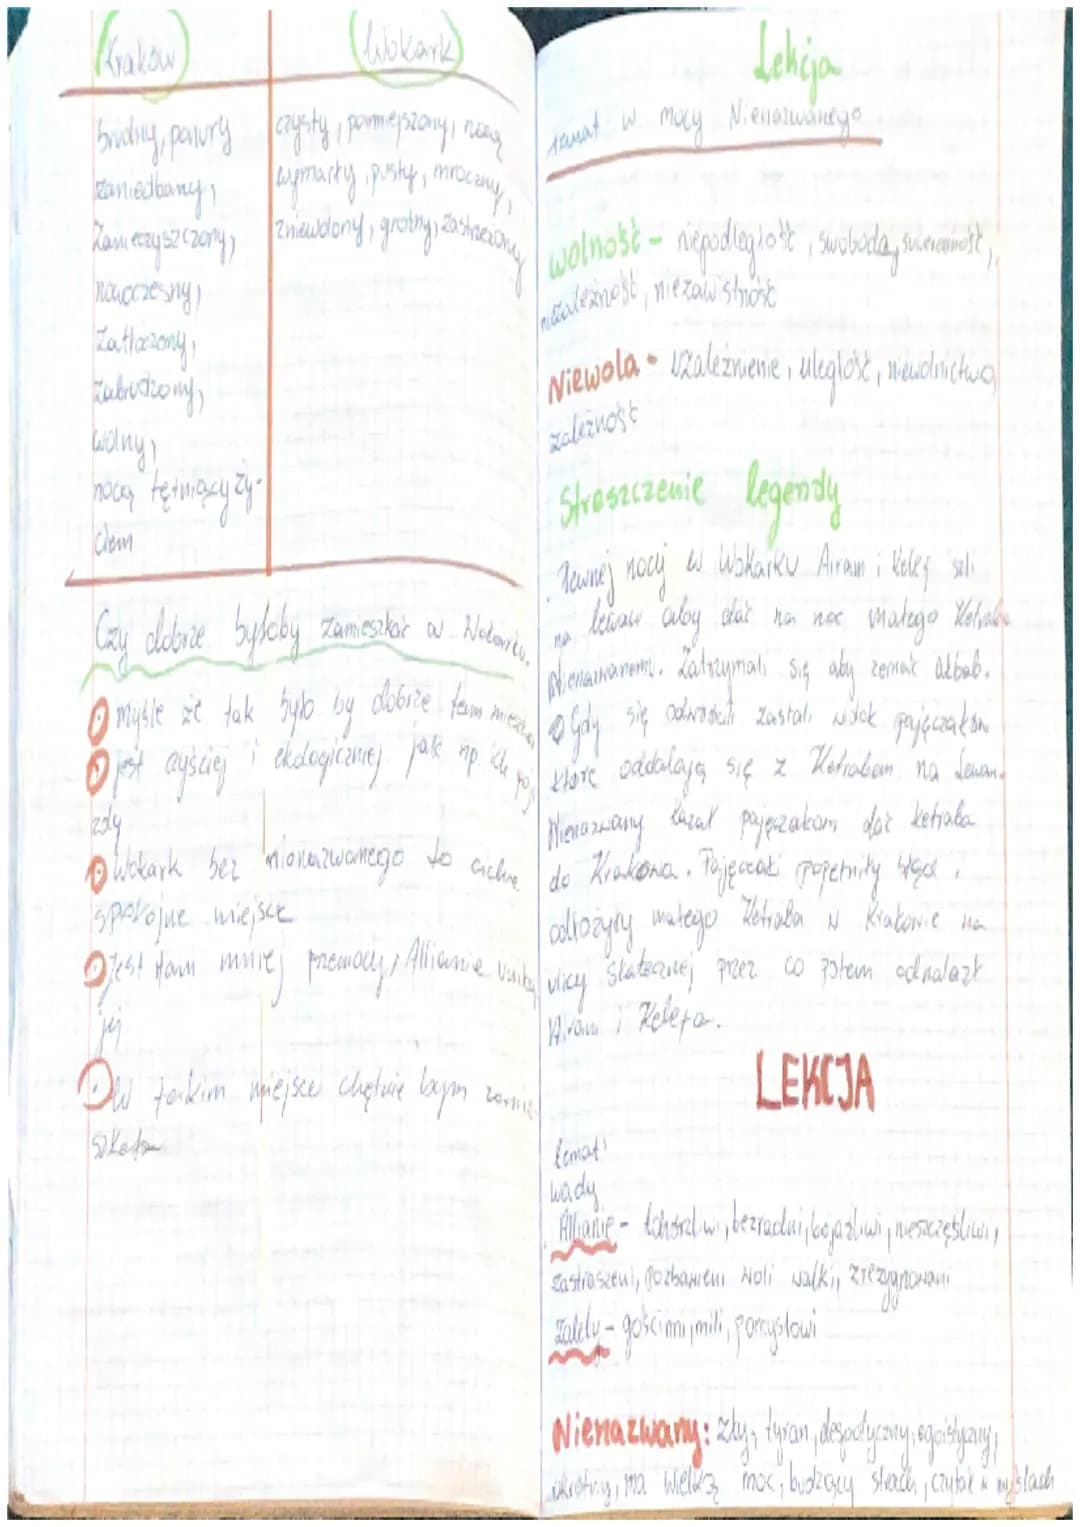 Kraków
brudny, ponury
zaniedbany,
Zanieczyszczony,
nowoczesny,
Zatłoczony,
Zabrudzony,
wolny,
nocą tętniący ży-
ciem
Wokark
czysty, pomniejszony, nocą
wymarły, pusty, mroczny,
zniewolony, groźny, zastraszony
Czy dobrze byłoby zamieszkać w
myśle że tak było by dobrze tam
jest czyściej i ekologiczniej jak np. ich poja
zdy
Wokark bez nienazwanego to ciche
spokojne miejsce
Jest tam mniej przemocy, Allianie
jej
W takim miejsce chętnie bym
Lekcja
temat w mocy Nienazwanego
wolność - niepodległość, swoboda, suwerenność,
niezależność, niezawisłość
Niewola - uzależnienie, uległość, niewolnictwo
zależność
Streszczenie legendy
Pewnej nocy w Wokarku Airam i Kelef szli
na aby dać na noc małego Ketraba
Nienazwanemu. Zatrzymali się aby zerwać
Gdy się odwrócili zastali widok pajęczaków
które oddalają się z Ketrabem na
Nienazwany kazał pajęczakom dać ketraba
do Krakowa. Pajęczaki popełniły błąd i
odłożyły małego Ketraba w Krakowie na
ulicy Statecznej przez co potem odnalazł
Airam i Kelefa.
LEKCJA
temat
wady
Allianie - tchórzliwi, bezradni, bojaźliwi, nieszczęśliwi,
zastraszeni, pozbawieni woli walki, zrezygnowani
Zalety - gościnni, mili, pomysłowi
Nienazwany: zły, tyran, despotyczny, egoistyczny,
okrutny, ma wielką moc, budzący strach, czytał w myślach